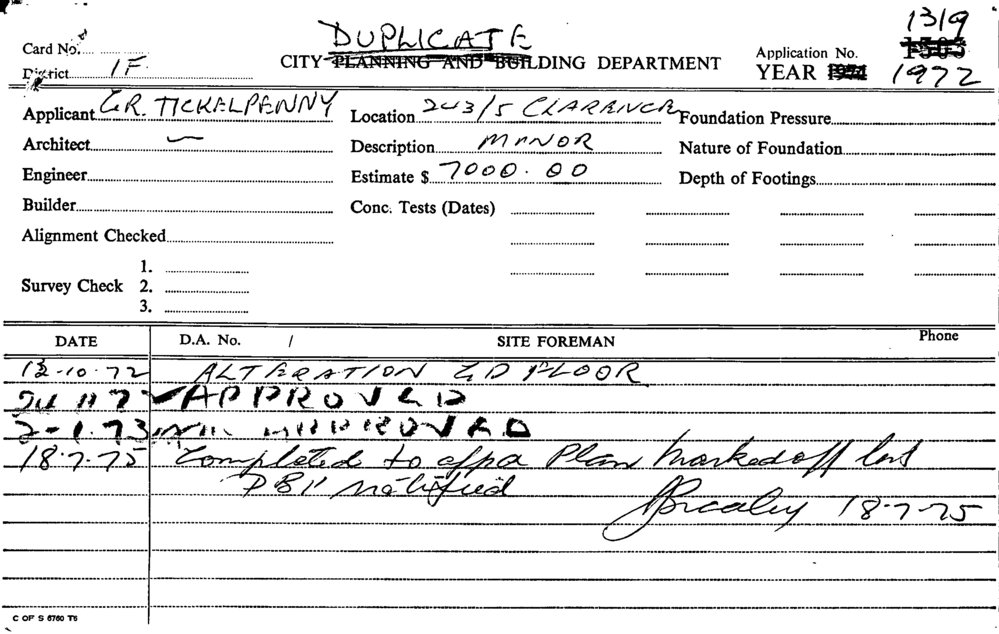 DUPLICATE
1319
Card No.
CITY PLANNING AND BUILDING DEPARTMENT
Application No. 1503
District 1F
YEAR 1972
Applicant G.R. TICKELPENNY
Location 243/5 CLARENCE
Foundation Pressure
Architect —
Description MANOR
Nature of Foundation
Engineer
Estimate $ 7000.00
Depth of Footings
Builder
Conc. Tests (Dates)
Alignment Checked
1.
Survey Check 2.
3.
DATE D.A. No. / SITE FOREMAN Phone
13-10-72 ALTERATION GD FLOOR
24 11 72 APPROVED
2-1-73 APPROVED
18-7-75 Completed to appd Plan Marked off
notified
18-7-75
C OF S 6760 T6